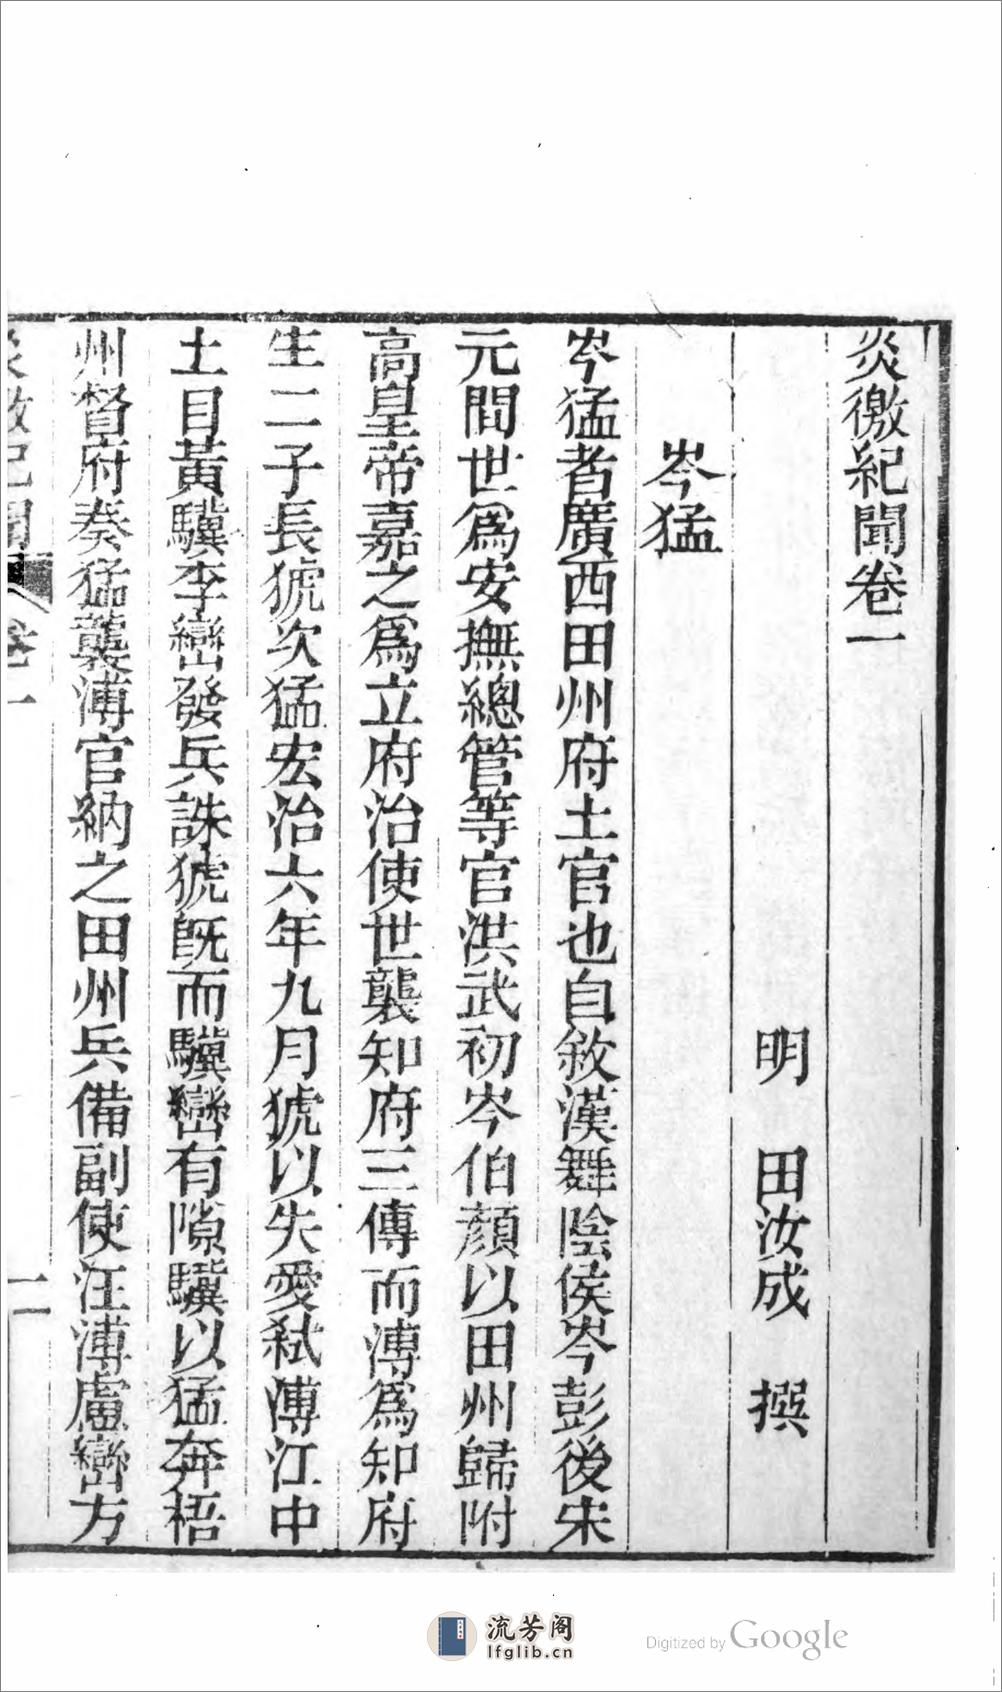 炎徼紀聞卷一
明　田汝成　撰
岑猛
岑猛者廣西田州府土官也自敘漢舞陰侯岑彭後宋
元間世爲安撫總管等官洪武初岑伯顔以田州歸附
高皇帝嘉之爲立府治使世襲知府三傳而溥爲知府
生二子長猇次猛宏治六年九月猇以失愛弑溥江中
土目黃驥李巒發兵誅猇旣而驥巒有隙驥以猛奔梧
州督府奏猛襲溥官納之田州兵備副使汪溥慮巒方
炎徼紀聞　卷一　一
流芳阁
lfglib.cn
Digitized by Google